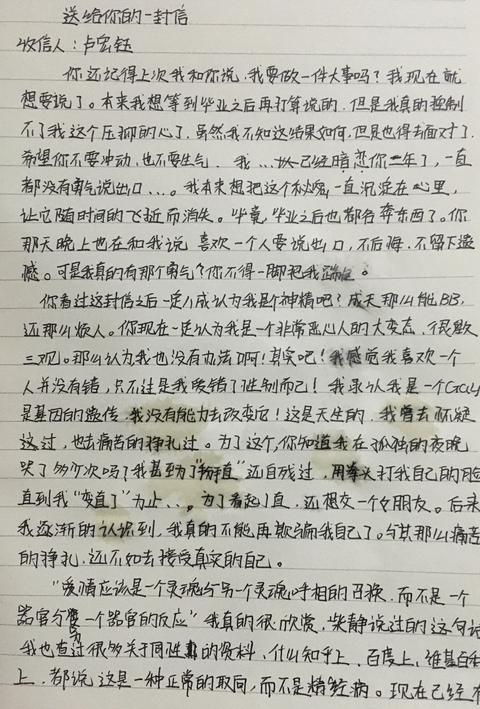 送给你的一封信
收信人：卢宏钰
你还记得上次我和你说，我要做一件大事吗？我现在就
想要说了。本来我想等到毕业之后再打算说的，但是我真的控制
不了我这个压抑的心了，虽然我不知这结果如何，但是也得去面对了。
希望你不要冲动，也不要生气，我…从已经暗恋你一年了，一直
都没有勇气说出口…。我本来想把这个秘密一直沉淀在心里，
让它随时间的飞逝而消失。毕竟，毕业之后也都各奔东西了。你
那天晚上也在和我说 喜欢一个人要说出口，不后悔，不留下遗
憾。可是我真的有那个勇气？你不得一脚把我踹。
你看过这封信之后一定八成认为我是个神精吧？成天那么能BB，
还那么烦人。你现在一定认为我是一个非常恶心人的大变态，很毁
三观。那么认为我也没有办法啊！其实吧！我感觉我喜欢一个
人并没有错，只不过是我爱错了性别而已！我承认我是一个Gay
是基因的遗传，我没有能力去改变它！这是天生的，我曾去怀疑
这过，也去痛苦的挣扎过。为了这个，你知道我在孤独的夜晚
哭了多少次吗？我甚至为了"掰直"还自残过，用拳头打我自己的脸
直到我"变直了"为止..。为了看起来直，还想交一个女朋友。后来
我逐渐的认识到，我真的不能再欺骗我自己了。与其那么痛苦
的挣扎，还不如去接受真实的自己。
"爱情应该是一个灵魂与另一个灵魂呼相的召换，而不是一个
器官与另一个器官的反应"我真的很欣赏，柴静说过的这句话
我也查过很多关于同性的资料，什么知乎上，百度上，维基百科
上，都说这是一种正常的取向，而不是精经病。现在已经有